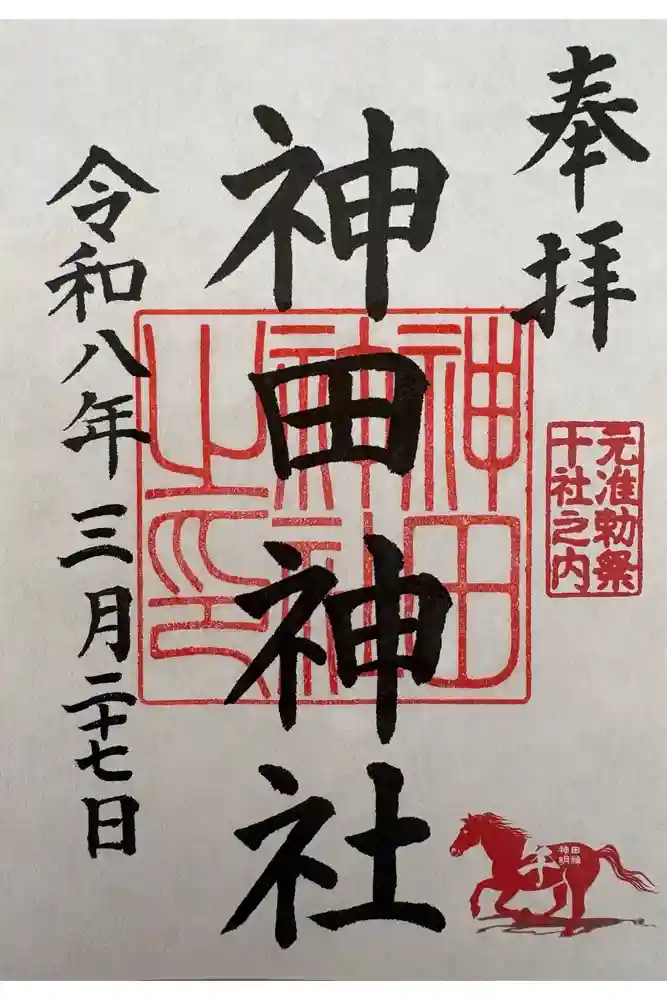 奉拝
元准勅祭
十社之内
神田神社
神田
神社
之印
令和八年三月二十七日
午
神田
明神